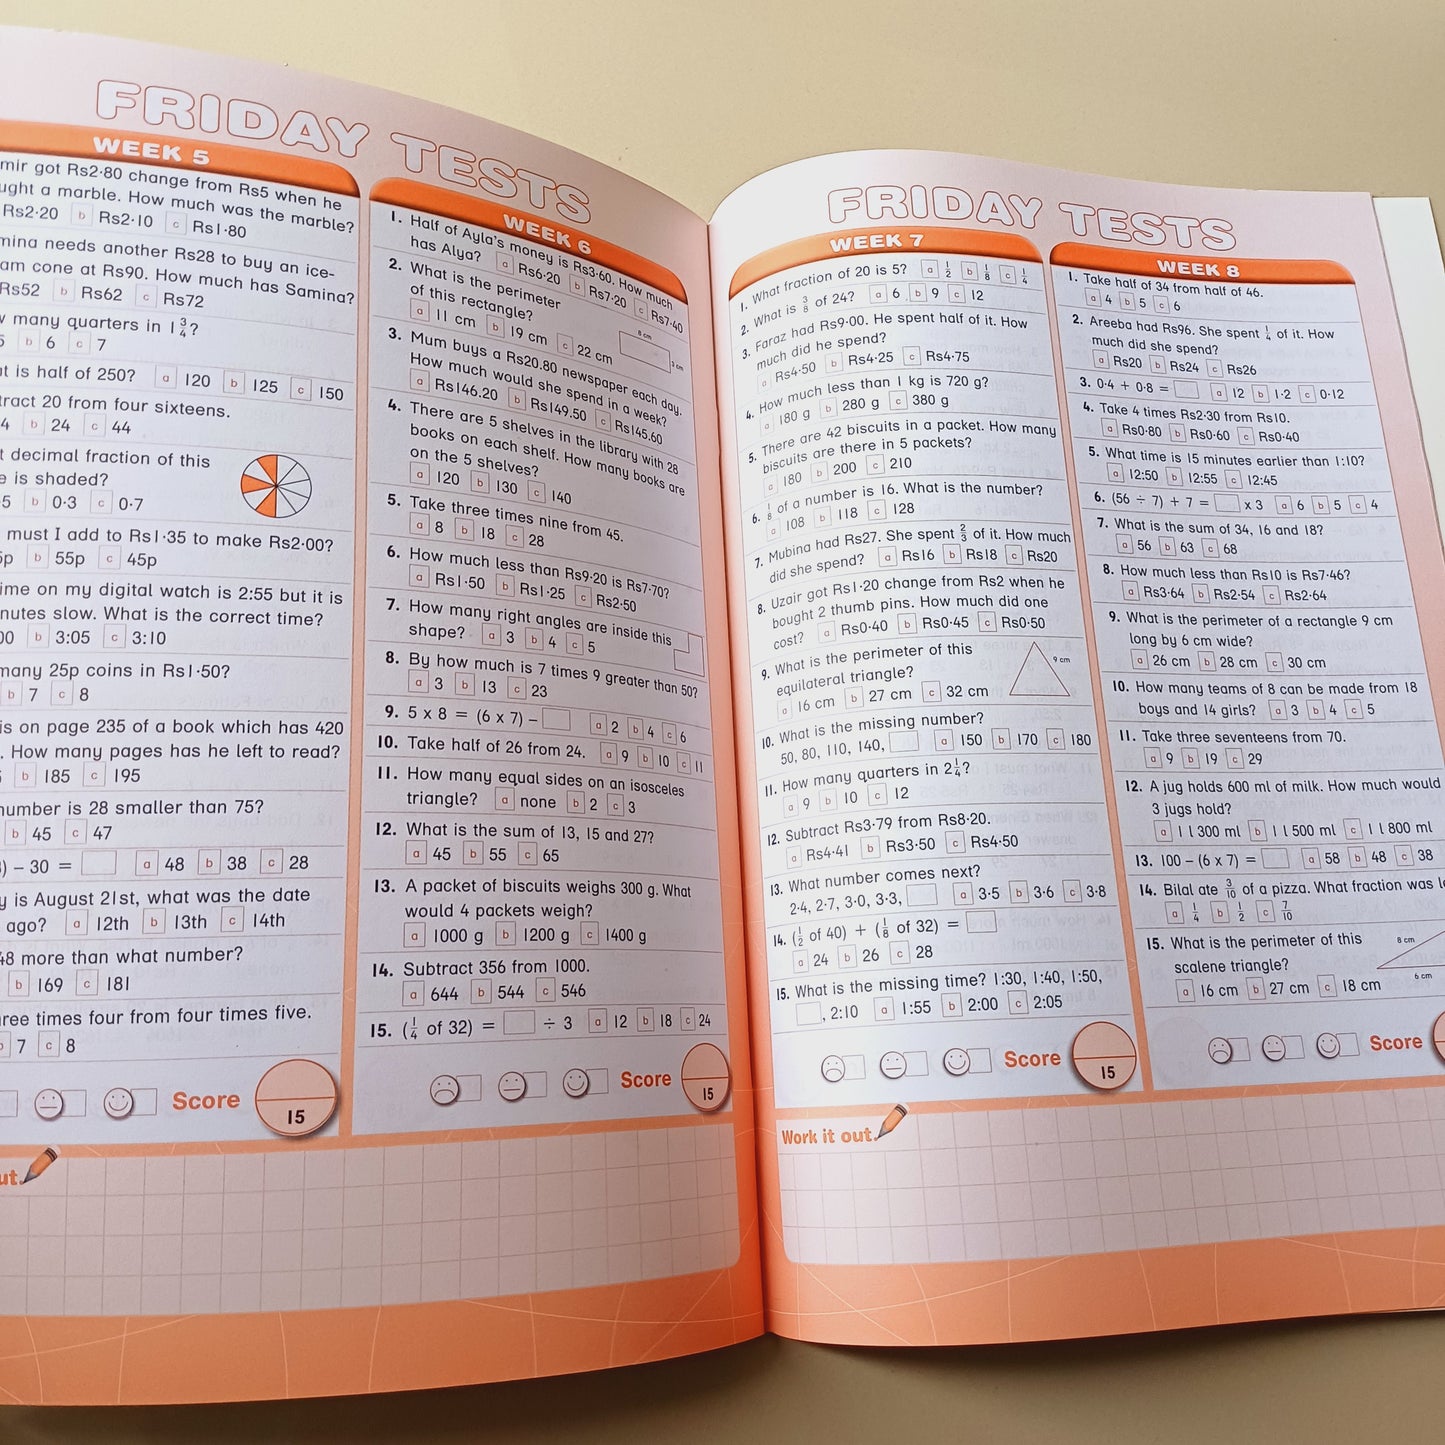 FRIDAY TESTS
WEEK 5
mir got Rs2·80 change from Rs5 when he
ught a marble. How much was the marble?
Rs2·20 b Rs2·10 c Rs1·80
mina needs another Rs28 to buy an ice-
am cone at Rs90. How much has Samina?
Rs52 b Rs62 c Rs72
w many quarters in 1 3/4?
5 b 6 c 7
t is half of 250? a 120 b 125 c 150
tract 20 from four sixteens.
4 b 24 c 44
t decimal fraction of this
e is shaded?
·5 b 0·3 c 0·7
must I add to Rs1·35 to make Rs2·00?
5p b 55p c 45p
ime on my digital watch is 2:55 but it is
nutes slow. What is the correct time?
00 b 3:05 c 3:10
many 25p coins in Rs1·50?
b 7 c 8
is on page 235 of a book which has 420
. How many pages has he left to read?
5 b 185 c 195
number is 28 smaller than 75?
b 45 c 47
) – 30 = a 48 b 38 c 28
y is August 21st, what was the date
ago? a 12th b 13th c 14th
48 more than what number?
b 169 c 181
ree times four from four times five.
b 7 c 8
Score
15
ut.
WEEK 6
1. Half of Ayla's money is Rs3·60. How much
has Alya? a Rs6·20 b Rs7·20 c Rs7·40
2. What is the perimeter
of this rectangle?
8 cm
3 cm
a 11 cm b 19 cm c 22 cm
3. Mum buys a Rs20.80 newspaper each day.
How much would she spend in a week?
a Rs146.20 b Rs149.50 c Rs145.60
4. There are 5 shelves in the library with 28
books on each shelf. How many books are
on the 5 shelves?
a 120 b 130 c 140
5. Take three times nine from 45.
a 8 b 18 c 28
6. How much less than Rs9·20 is Rs7·70?
a Rs1·50 b Rs1·25 c Rs2·50
7. How many right angles are inside this
shape? a 3 b 4 c 5
8. By how much is 7 times 9 greater than 50?
a 3 b 13 c 23
9. 5 x 8 = (6 x 7) – a 2 b 4 c 6
10. Take half of 26 from 24. a 9 b 10 c 11
11. How many equal sides on an isosceles
triangle? a none b 2 c 3
12. What is the sum of 13, 15 and 27?
a 45 b 55 c 65
13. A packet of biscuits weighs 300 g. What
would 4 packets weigh?
a 1000 g b 1200 g c 1400 g
14. Subtract 356 from 1000.
a 644 b 544 c 546
15. (1/4 of 32) = ÷ 3 a 12 b 18 c 24
Score
15
FRIDAY TESTS
WEEK 7
1. What fraction of 20 is 5? a 1/2 b 1/8 c 1/4
2. What is 3/8 of 24? a 6 b 9 c 12
3. Faraz had Rs9·00. He spent half of it. How
much did he spend?
a Rs4·50 b Rs4·25 c Rs4·75
4. How much less than 1 kg is 720 g?
a 180 g b 280 g c 380 g
5. There are 42 biscuits in a packet. How many
biscuits are there in 5 packets?
a 180 b 200 c 210
6. 1/8 of a number is 16. What is the number?
a 108 b 118 c 128
7. Mubina had Rs27. She spent 2/3 of it. How much
did she spend? a Rs16 b Rs18 c Rs20
8. Uzair got Rs1·20 change from Rs2 when he
bought 2 thumb pins. How much did one
cost? a Rs0·40 b Rs0·45 c Rs0·50
9. What is the perimeter of this
equilateral triangle?
9 cm
a 16 cm b 27 cm c 32 cm
10. What is the missing number?
50, 80, 110, 140, a 150 b 170 c 180
11. How many quarters in 2 1/4?
a 9 b 10 c 12
12. Subtract Rs3·79 from Rs8·20.
a Rs4·41 b Rs3·50 c Rs4·50
13. What number comes next?
2·4, 2·7, 3·0, 3·3, a 3·5 b 3·6 c 3·8
14. (1/2 of 40) + (1/8 of 32) =
a 24 b 26 c 28
15. What is the missing time? 1:30, 1:40, 1:50,
, 2:10 a 1:55 b 2:00 c 2:05
Score
15
Work it out.
WEEK 8
1. Take half of 34 from half of 46.
a 4 b 5 c 6
2. Areeba had Rs96. She spent 1/4 of it. How
much did she spend?
a Rs20 b Rs24 c Rs26
3. 0·4 + 0·8 = a 12 b 1·2 c 0·12
4. Take 4 times Rs2·30 from Rs10.
a Rs0·80 b Rs0·60 c Rs0·40
5. What time is 15 minutes earlier than 1:10?
a 12:50 b 12:55 c 12:45
6. (56 ÷ 7) + 7 = x 3 a 6 b 5 c 4
7. What is the sum of 34, 16 and 18?
a 56 b 63 c 68
8. How much less than Rs10 is Rs7·46?
a Rs3·64 b Rs2·54 c Rs2·64
9. What is the perimeter of a rectangle 9 cm
long by 6 cm wide?
a 26 cm b 28 cm c 30 cm
10. How many teams of 8 can be made from 18
boys and 14 girls? a 3 b 4 c 5
11. Take three seventeens from 70.
a 9 b 19 c 29
12. A jug holds 600 ml of milk. How much would
3 jugs hold?
a 1 l 300 ml b 1 l 500 ml c 1 l 800 ml
13. 100 – (6 x 7) = a 58 b 48 c 38
14. Bilal ate 3/10 of a pizza. What fraction was l
a 1/4 b 1/2 c 7/10
15. What is the perimeter of this
scalene triangle?
8 cm
6 cm
a 16 cm b 27 cm c 18 cm
Score